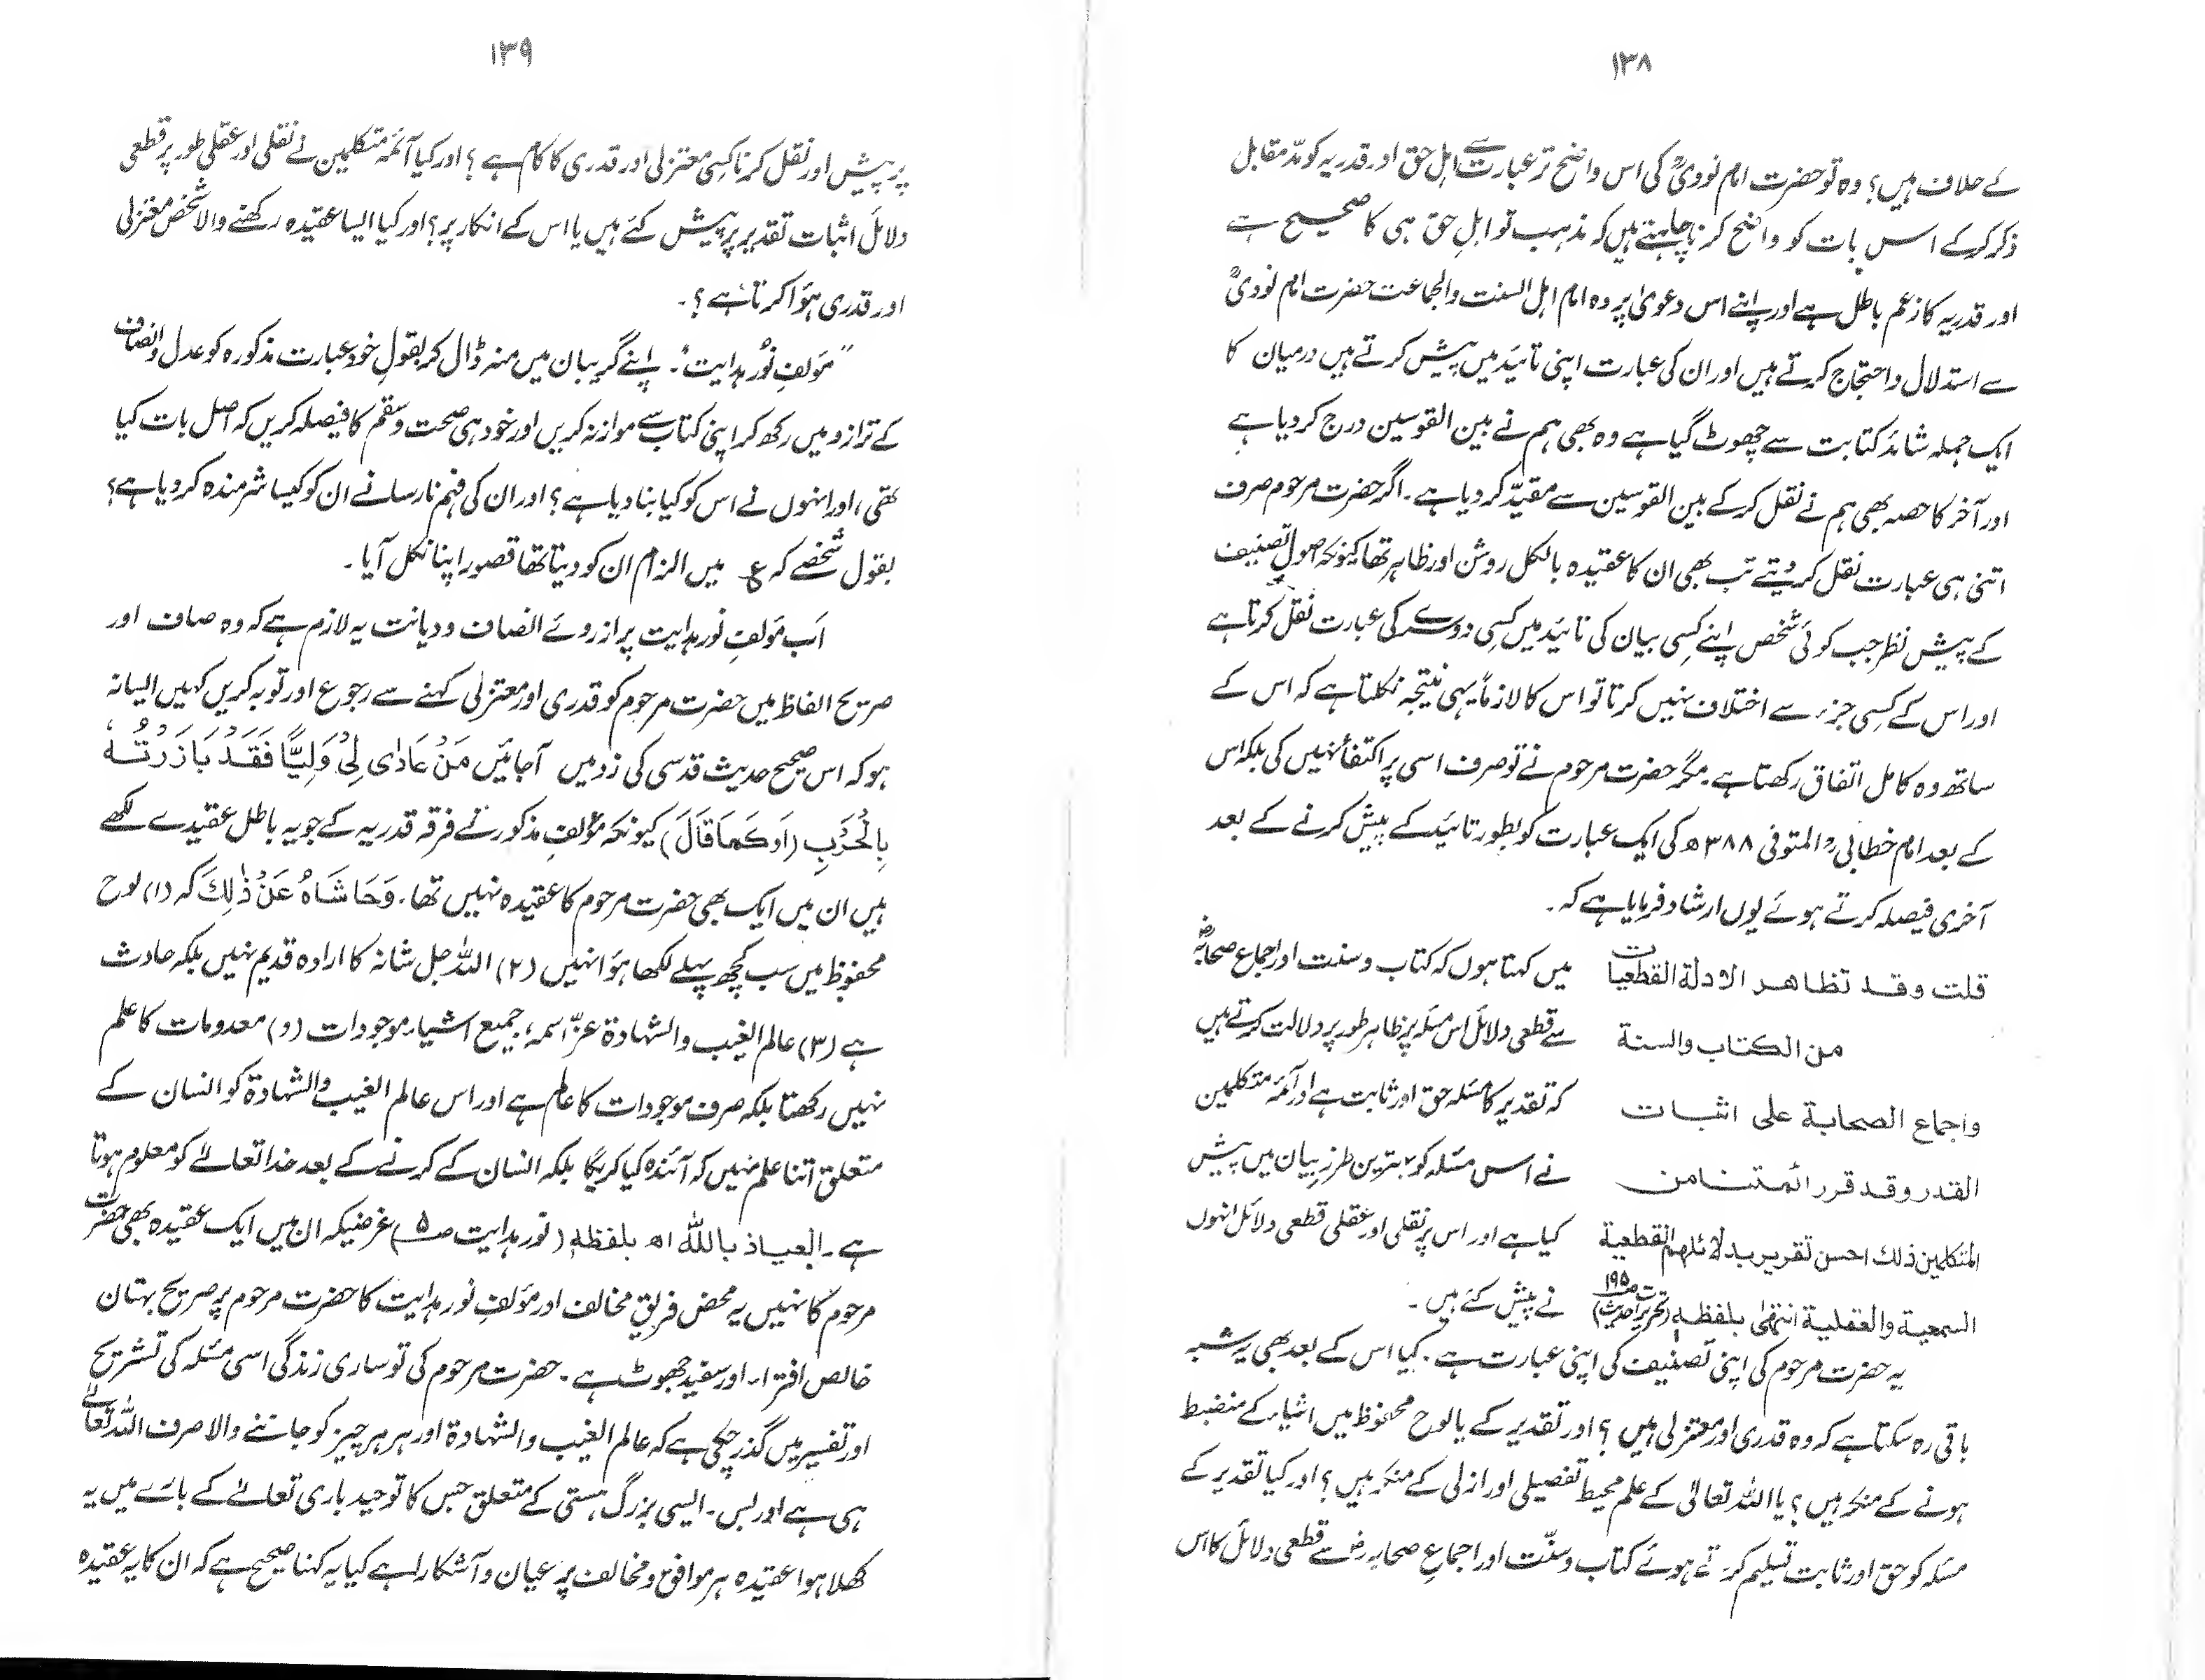 ۱۳۸
کے خلاف ہیں؟ وہ تو حضرت امام نوویؒ کی اس واضح تر عبارت سے اہل حق اور قدریہ کو مدّ مقابل
ذکر کرکے اس بات کو واضح کرنا چاہتے ہیں کہ مذہب تو اہلِ حق ہی کا صحیح ہے
اور قدریہ کا زعم باطل ہے اور اپنے اس دعویٰ پر وہ امام اہل السنت والجماعت حضرت امام نوویؒ
سے استدلال و احتجاج کرتے ہیں اور ان کی عبارت اپنی تائید میں پیش کرتے ہیں درمیان کا
ایک جملہ شائد کتابت سے چھوٹ گیا ہے وہ بھی ہم نے بین القوسین درج کر دیا ہے
اور آخر کا حصہ بھی ہم نے نقل کر کے بین القوسین سے مقیّد کر دیا ہے۔ اگر حضرت مرحوم صرف
اتنی ہی عبارت نقل کر دیتے تب بھی ان کا عقیدہ بالکل روشن اور ظاہر تھا کیونکہ اصولِ تصنیف
کے پیش نظر جب کوئی شخص اپنے کسی بیان کی تائید میں کسی دوسرے کی عبارت نقل کرتا ہے
اور اس کے کسی جزء سے اختلاف نہیں کرتا تو اس کا لازماً یہی نتیجہ نکلتا ہے کہ اس کے
ساتھ وہ کامل اتفاق رکھتا ہے۔ مگر حضرت مرحوم نے تو صرف اسی پر اکتفا نہیں کی بلکہ اس
کے بعد امام خطابیؒ المتوفی ۳۸۸ھ کی ایک عبارت کو بطور تائید کے پیش کرنے کے بعد
آخری فیصلہ کرتے ہوئے یوں ارشاد فرمایا ہے کہ۔
قلت وقد تظاهر الادلة القطعيات
من الكتاب والسنة
واجماع الصحابة على اثبات
القدر وقد قرر ائمتنا من
المتكلمين ذلك احسن تقرير بدلائلهم القطعية
السمعية والعقلية انتهىٰ بلفظہٖ (تحریرات حدیث ص۱۹۵)
میں کہتا ہوں کہ کتاب و سنت اور اجماع صحابہؓ
سے قطعی دلائل اس مسئلہ پر ظاہر طور پر دلالت کرتے ہیں
کہ تقدیر کا مسئلہ حق اور ثابت ہے اور آئمہ متکلمین
نے اس مسئلہ کو بہترین طرزِ بیان میں پیش
کیا ہے اور اس پر نقلی اور عقلی قطعی دلائل انہوں
نے پیش کئے ہیں۔
یہ حضرت مرحوم کی اپنی تصنیف کی اپنی عبارت ہے۔ کیا اس کے بعد بھی یہ شبہ
باقی رہ سکتا ہے کہ وہ قدری اور معتزلی ہیں؟ اور تقدیر کے یا لوح محفوظ میں اشیاء کے منضبط
ہونے کے منکر ہیں؟ یا اللہ تعالیٰ کے علم محیط تفصیلی اور ازلی کے منکر ہیں؟ اور کیا تقدیر کے
مسئلہ کو حق اور ثابت تسلیم کرتے ہوئے کتاب و سنّت اور اجماعِ صحابہ رضؓ سے قطعی دلائل کا اس
۱۳۹
پر پیش اور نقل کرنا کسی معتزلی اور قدری کا کام ہے؟ اور کیا آئمہ متکلمین نے نقلی اور عقلی طور پر قطعی
دلائل اثبات تقدیر پر پیش کئے ہیں یا اس کے انکار پر؟ اور کیا ایسا عقیدہ رکھنے والا شخص معتزلی
اور قدری ہؤا کرتا ہے؟۔
”مؤلفِ نُورِ ہدایت“۔ اپنے گریبان میں منہ ڈال کر بقولِ خود عبارت مذکورہ کو عدل و انصاف
کے ترازو میں رکھ کر اپنی کتاب سے موازنہ کریں اور خود ہی صحت و سقم کا فیصلہ کریں کہ اصل بات کیا
تھی، اور انہوں نے اس کو کیا بنا دیا ہے؟ اور ان کی فہم نارسا نے ان کو کیسا شرمندہ کر دیا ہے؟
بقول شخصے کہ ع میں الزام ان کو دیتا تھا قصور اپنا نکل آیا۔
اَب مؤلفِ نور ہدایت پر از روئے انصاف و دیانت یہ لازم ہے کہ وہ صاف اور
صریح الفاظ میں حضرت مرحوم کو قدری اور معتزلی کہنے سے رجوع اور توبہ کریں کہیں ایسا نہ
ہو کہ اس صحیح حدیث قدسی کی زد میں آجائیں مَنْ عَادٰى لِىْ وَلِيًّا فَقَدْ بَارَزْتُهٗ
بِالْحَرْبِ (اَوکَمَا قَالَ) کیونکہ مؤلفِ مذکور نے فرقہ قدریہ کے جو یہ باطل عقیدے لکھے
ہیں ان میں ایک بھی حضرت مرحوم کا عقیدہ نہیں تھا۔ وَحَاشَاهُ عَنْ ذٰلِكَ کہ (۱) لوح
محفوظ میں سب کچھ پہلے لکھا ہؤا نہیں (۲) اللہ جل شانہ کا ارادہ قدیم نہیں بلکہ حادث
ہے (۳) عالم الغیب والشہادۃ عزّ اسمہٗ، جمیع اشیاء موجودات (و) معدومات کا علم
نہیں رکھتا بلکہ صرف موجودات کا عالم ہے اور اس عالم الغیب والشہادۃ کو انسان کے
متعلق اتنا علم نہیں کہ آئندہ کیا کریگا بلکہ انسان کے کرنے کے بعد خدا تعالےٰ کو معلوم ہوتا
ہے۔ العیاذ باللہ اھ بلفظہٖ (نور ہدایت ص۵) غرضیکہ ان میں ایک عقیدہ بھی حضرت
مرحوم کا نہیں یہ محض فریقِ مخالف اور مؤلفِ نور ہدایت کا حضرت مرحوم پر صریح بہتان
خالص افتراء اور سفید جھوٹ ہے۔ حضرت مرحوم کی تو ساری زندگی اسی مسئلہ کی تشریح
اور تفسیر میں گذر چکی ہے کہ عالم الغیب والشہادۃ اور ہر ہر چیز کو جاننے والا صرف اللہ تعالےٰ
ہی ہے اور بس۔ ایسی بزرگ ہستی کے متعلق جس کا توحید باری تعالےٰ کے بارے میں یہ
کھلا ہوا عقیدہ ہر موافق و مخالف پر عیان و آشکارا ہے کیا یہ کہنا صحیح ہے کہ ان کا یہ عقیدہ